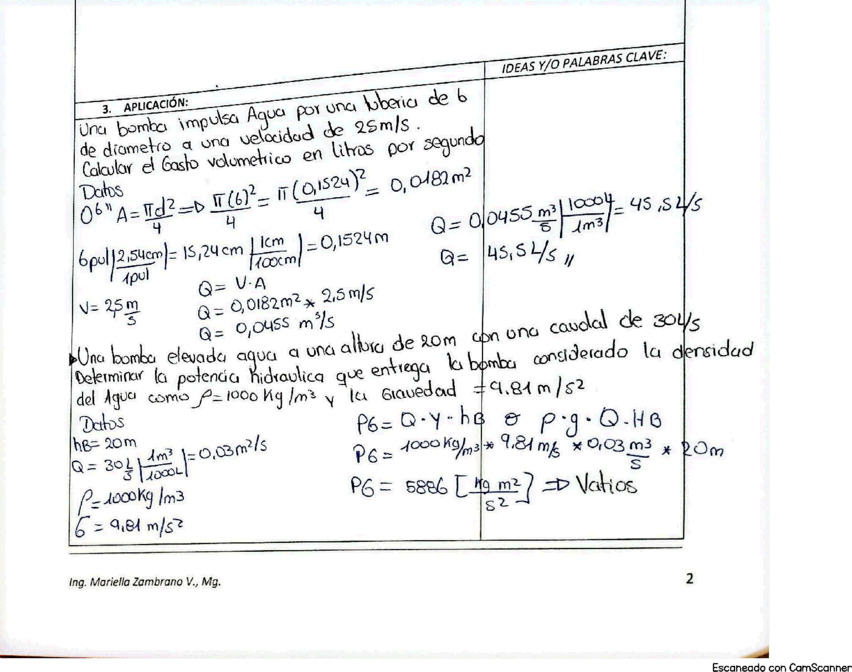 IDEAS Y/O PALABRAS CLAVE:
3. APLICACIÓN:
Una bomba impulsa Agua por una tuberia de 6
de diametro a una velocidad de 25m/s.
Calcular el Gasto volumetrico en litros por segundo
Datos
O 6" A = πd²/4 => π(6)²/4 = π(0,1524)²/4 = 0,0182m²
6pul |2,54cm/1pul| = 15,24cm |1cm/100cm| = 0,1524m
V = 2,5 m/s
Q = V·A
Q = 0,0182m² * 2,5m/s
Q = 0,0455 m³/s
Q = 0,0455 m³/s |1000L/1m³| = 45,5L/s
Q = 45,5L/s //
Una bomba elevada agua a una altura de 20m con una caudal de 30L/s
Determinar la potencia hidraulica que entrega la bomba considerado la densidad
del Agua como ρ=1000Kg/m³ y la Gravedad =9.81m/s²
Datos
hB= 20m
Q = 30 L/s |1m³/1000L| = 0,03m²/s
ρ=1000Kg/m3
G = 9,81 m/s²
PG = Q·γ·hB o ρ·g·Q·HB
PG = 1000Kg/m³ * 9.81m/s * 0,03 m3/s * 20m
PG = 5886 [Kg m²/s²] => Vatios
Ing. Mariella Zambrano V., Mg.
2
Escaneado con CamScanner